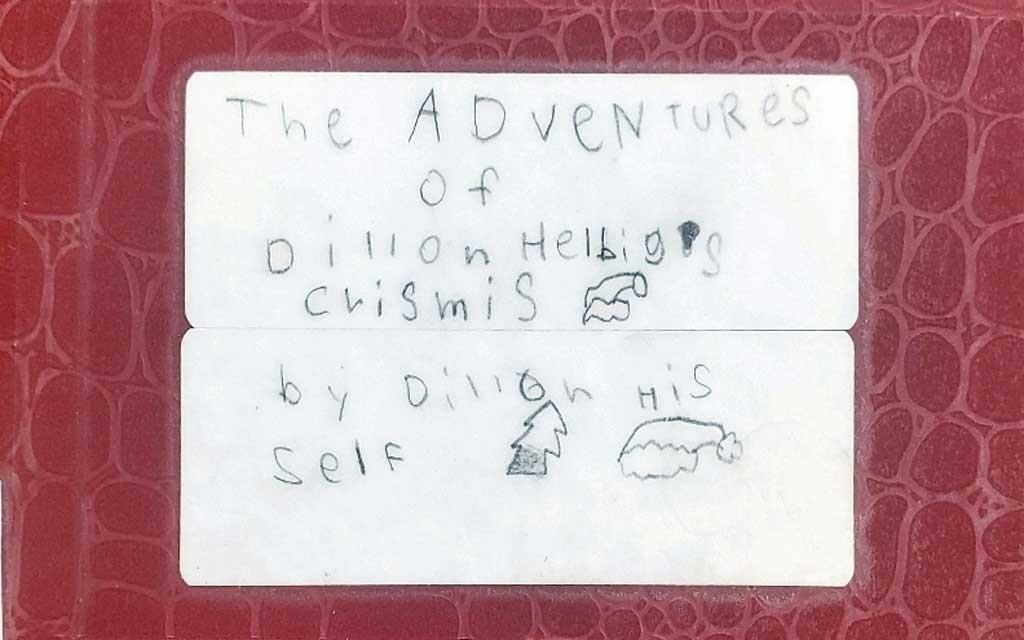 The ADveNTURes
of
Dillon Helbig's
crismis
by Dillon His
self